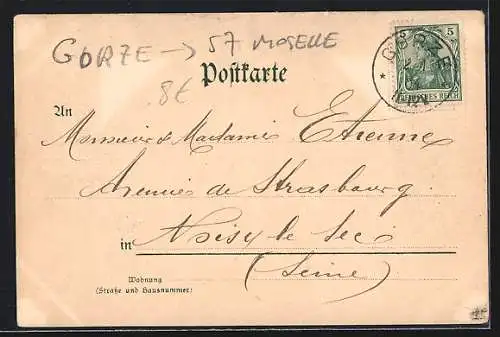 GORZE → 57 MOSELLE
8€
Postkarte
5
GORZE
DEUTSCHES REICH
An
Monsieur & Madame Etienne
Avenue de Strasbourg
in Noisy le Sec
(Seine)
Wohnung
(Straße und Hausnummer)